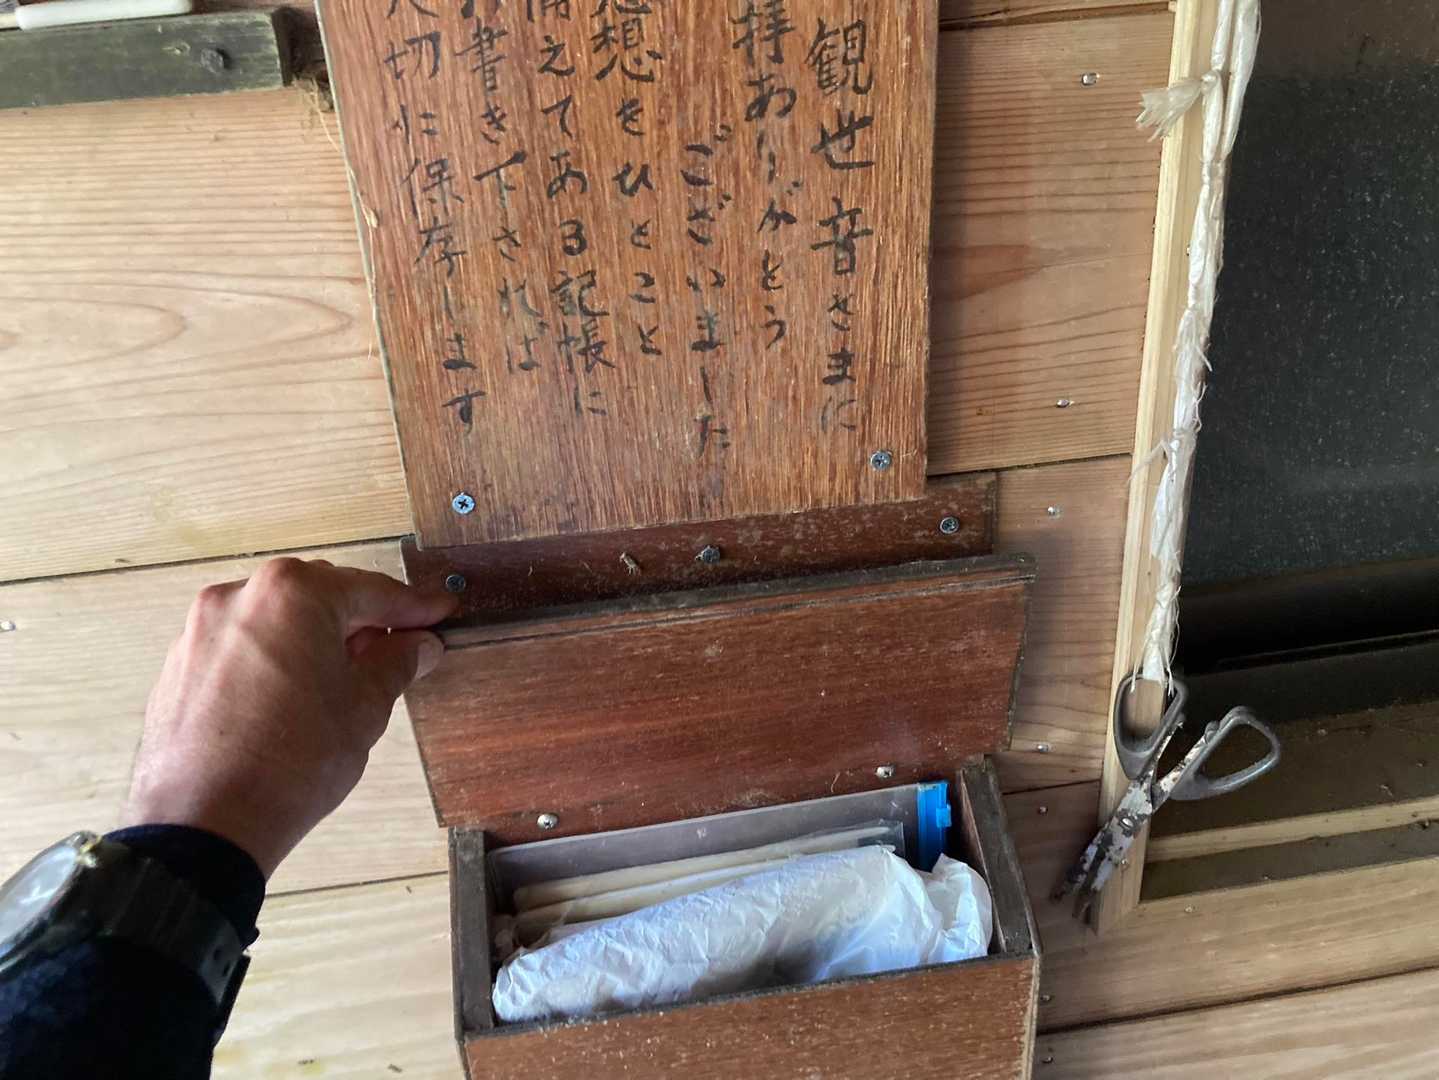 観世音さまに
拝ありがとう
ございました
感想をひとこと
備えてある記帳に
お書き下されば
大切に保存します